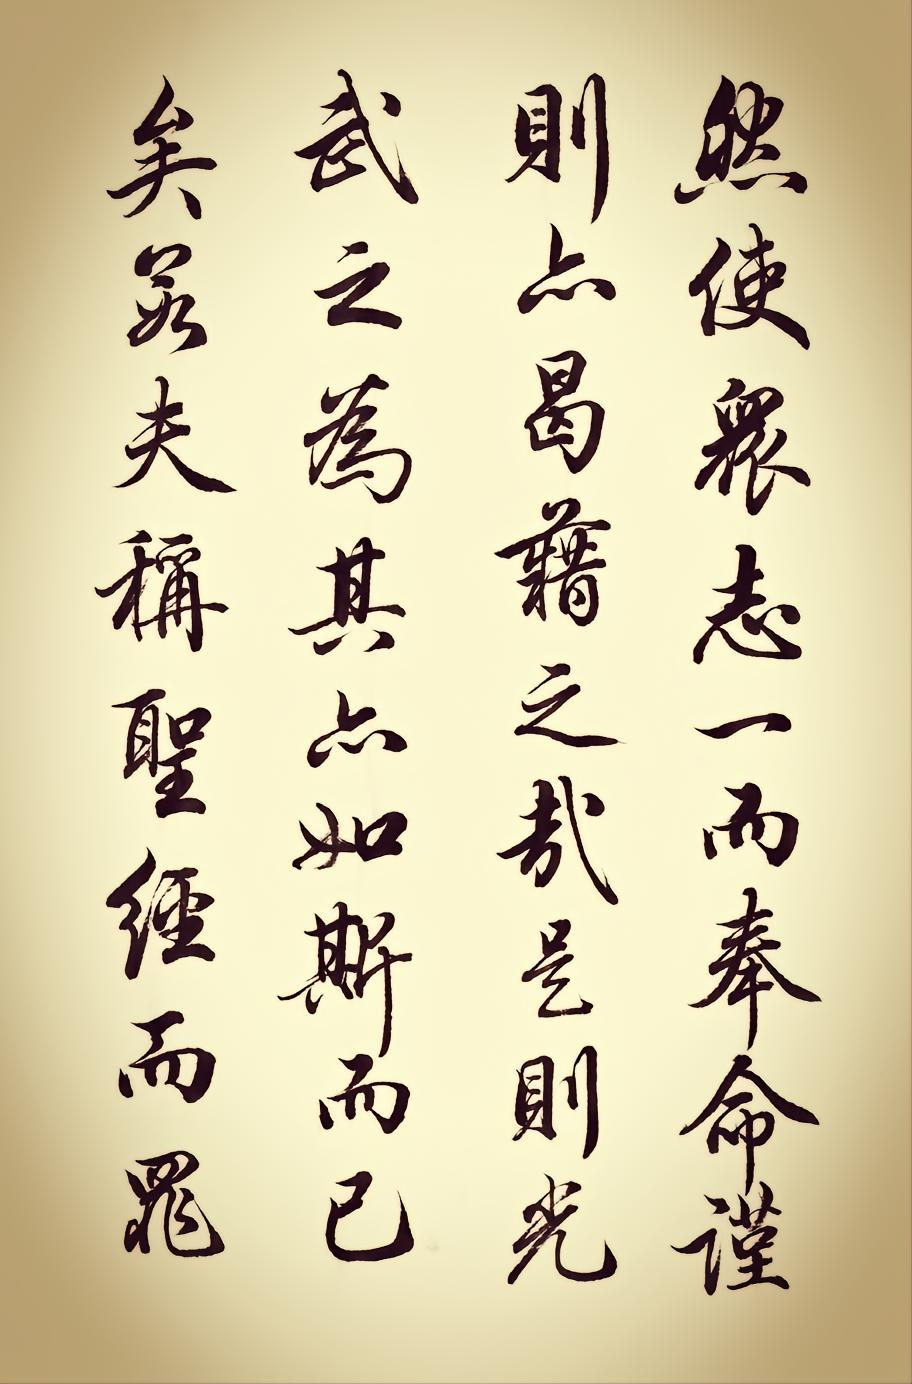 然使眾志一而奉命謹
則亦曷藉之哉是則光
武之為其亦如斯而已
矣若夫稱聖經而罪